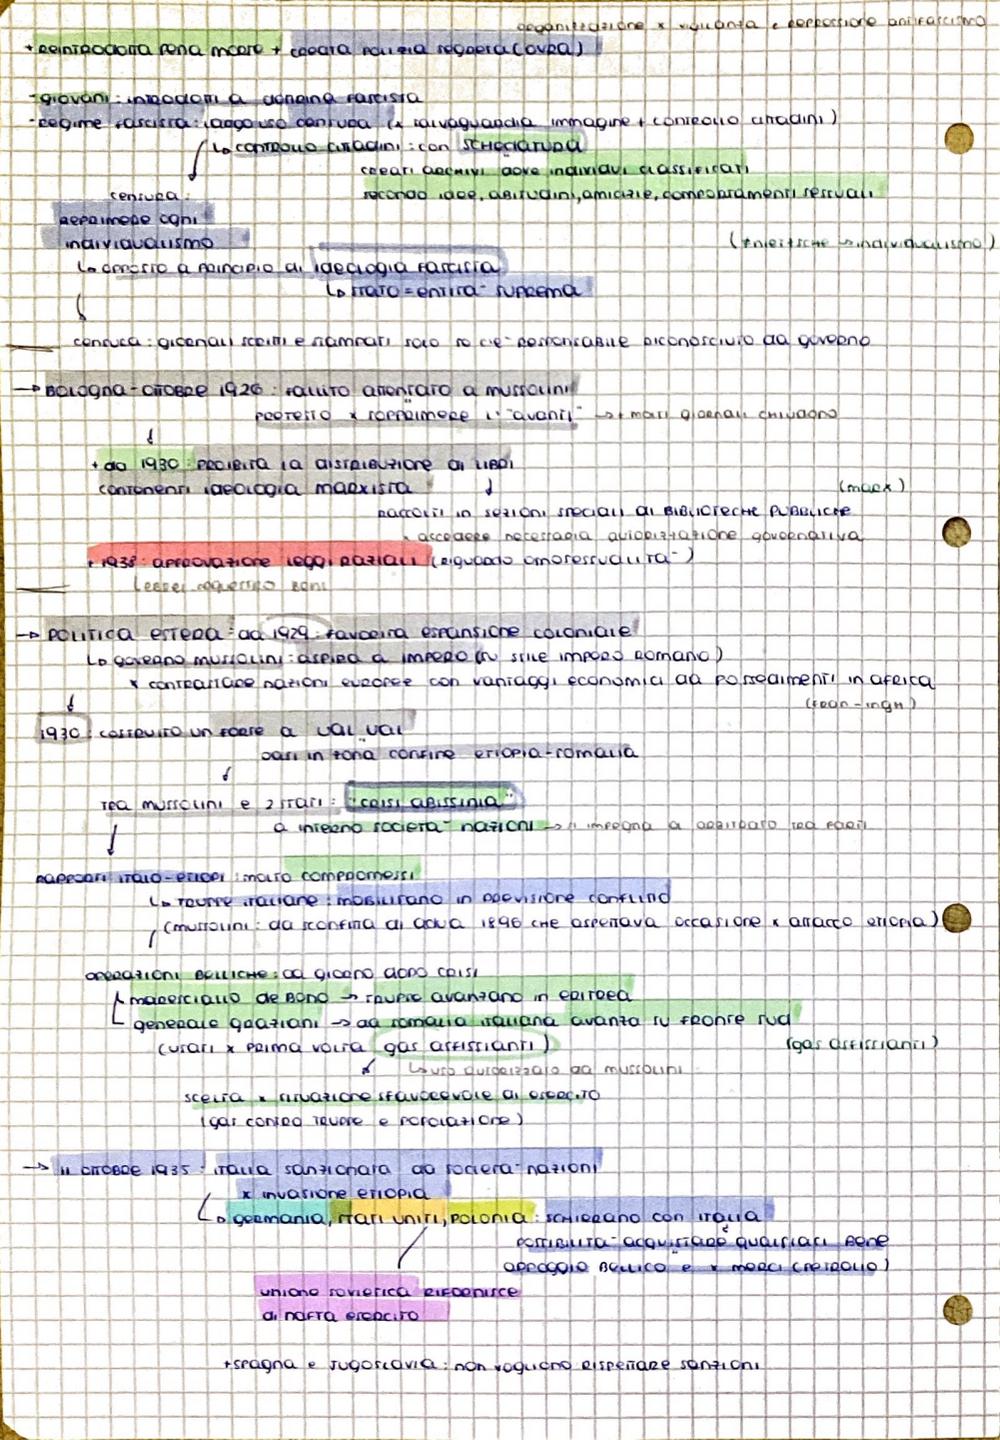 organizzazione x vigilanza e repressione antifascismo
+ reintrodotta pena morte + creata polizia segreta (OVRA)
- giovani: introdotti a dottrina fascista
- regime fascista: largo uso censura (x salvaguardia immagine + controllo cittadini)
↳ controllo cittadini: con SCHEDATURA
creati archivi dove individui classificati
secondo idee, abitudini, amicizie, comportamenti sessuali
censura:
reprimere ogni
individualismo
(≠ nietzsche → individualismo)
↳ opposto a principio di ideologia fascista
↳ stato = entità suprema
censura: giornali scritti e stampati solo se c'è responsabile riconosciuto da governo
→ Bologna - ottobre 1926: fallito attentato a mussolini
pretesto x sopprimere l'"avanti" → + molti giornali chiudono
+ da 1930: proibita la distribuzione di libri
contenenti ideologia marxista
(marx)
raccolti in sezioni speciali di BIBLIOTECHE PUBBLICHE
x accedere necessaria autorizzazione governativa
+ 1938: approvazione leggi razziali (riguardo omosessualità)
→ politica estera: da 1929: favorita espansione coloniale
↳ governo mussolini: aspira a impero (su stile impero romano)
x contrastare nazioni europee con vantaggi economici da possedimenti in africa
(fran-ingh)
1930: costruito un forte a ual ual
oasi in zona confine etiopia-somalia
tra mussolini e 2 stati: "crisi abissinia"
a interno società nazioni → si impegna a arbitrato tra parti
rapporti italo-etiopi: molto compromessi
↳ truppe italiane: mobilitano in previsione conflitto
(mussolini: da sconfitta di adua 1896 che aspettava occasione x attacco etiopia)
operazioni belliche: da giorno dopo crisi
maresciallo de Bono → truppe avanzano in eritrea
generale graziani → da somalia italiana avanza su fronte sud
(usati x prima volta gas asfissianti)
(gas asfissianti)
↳ uso autorizzato da mussolini
scelta x situazione sfavorevole di esercito
(gas contro truppe e popolazione)
→ 11 ottobre 1935: italia sanzionata da società nazioni
x invasione etiopia
↳ germania, stati uniti, polonia: schierano con italia
possibilità acquistare qualsiasi bene
appoggio bellico e x merci (petrolio)
unione sovietica rifornisce
di nafta esercito
+ spagna e jugoslavia: non vogliono rispettare sanzioni